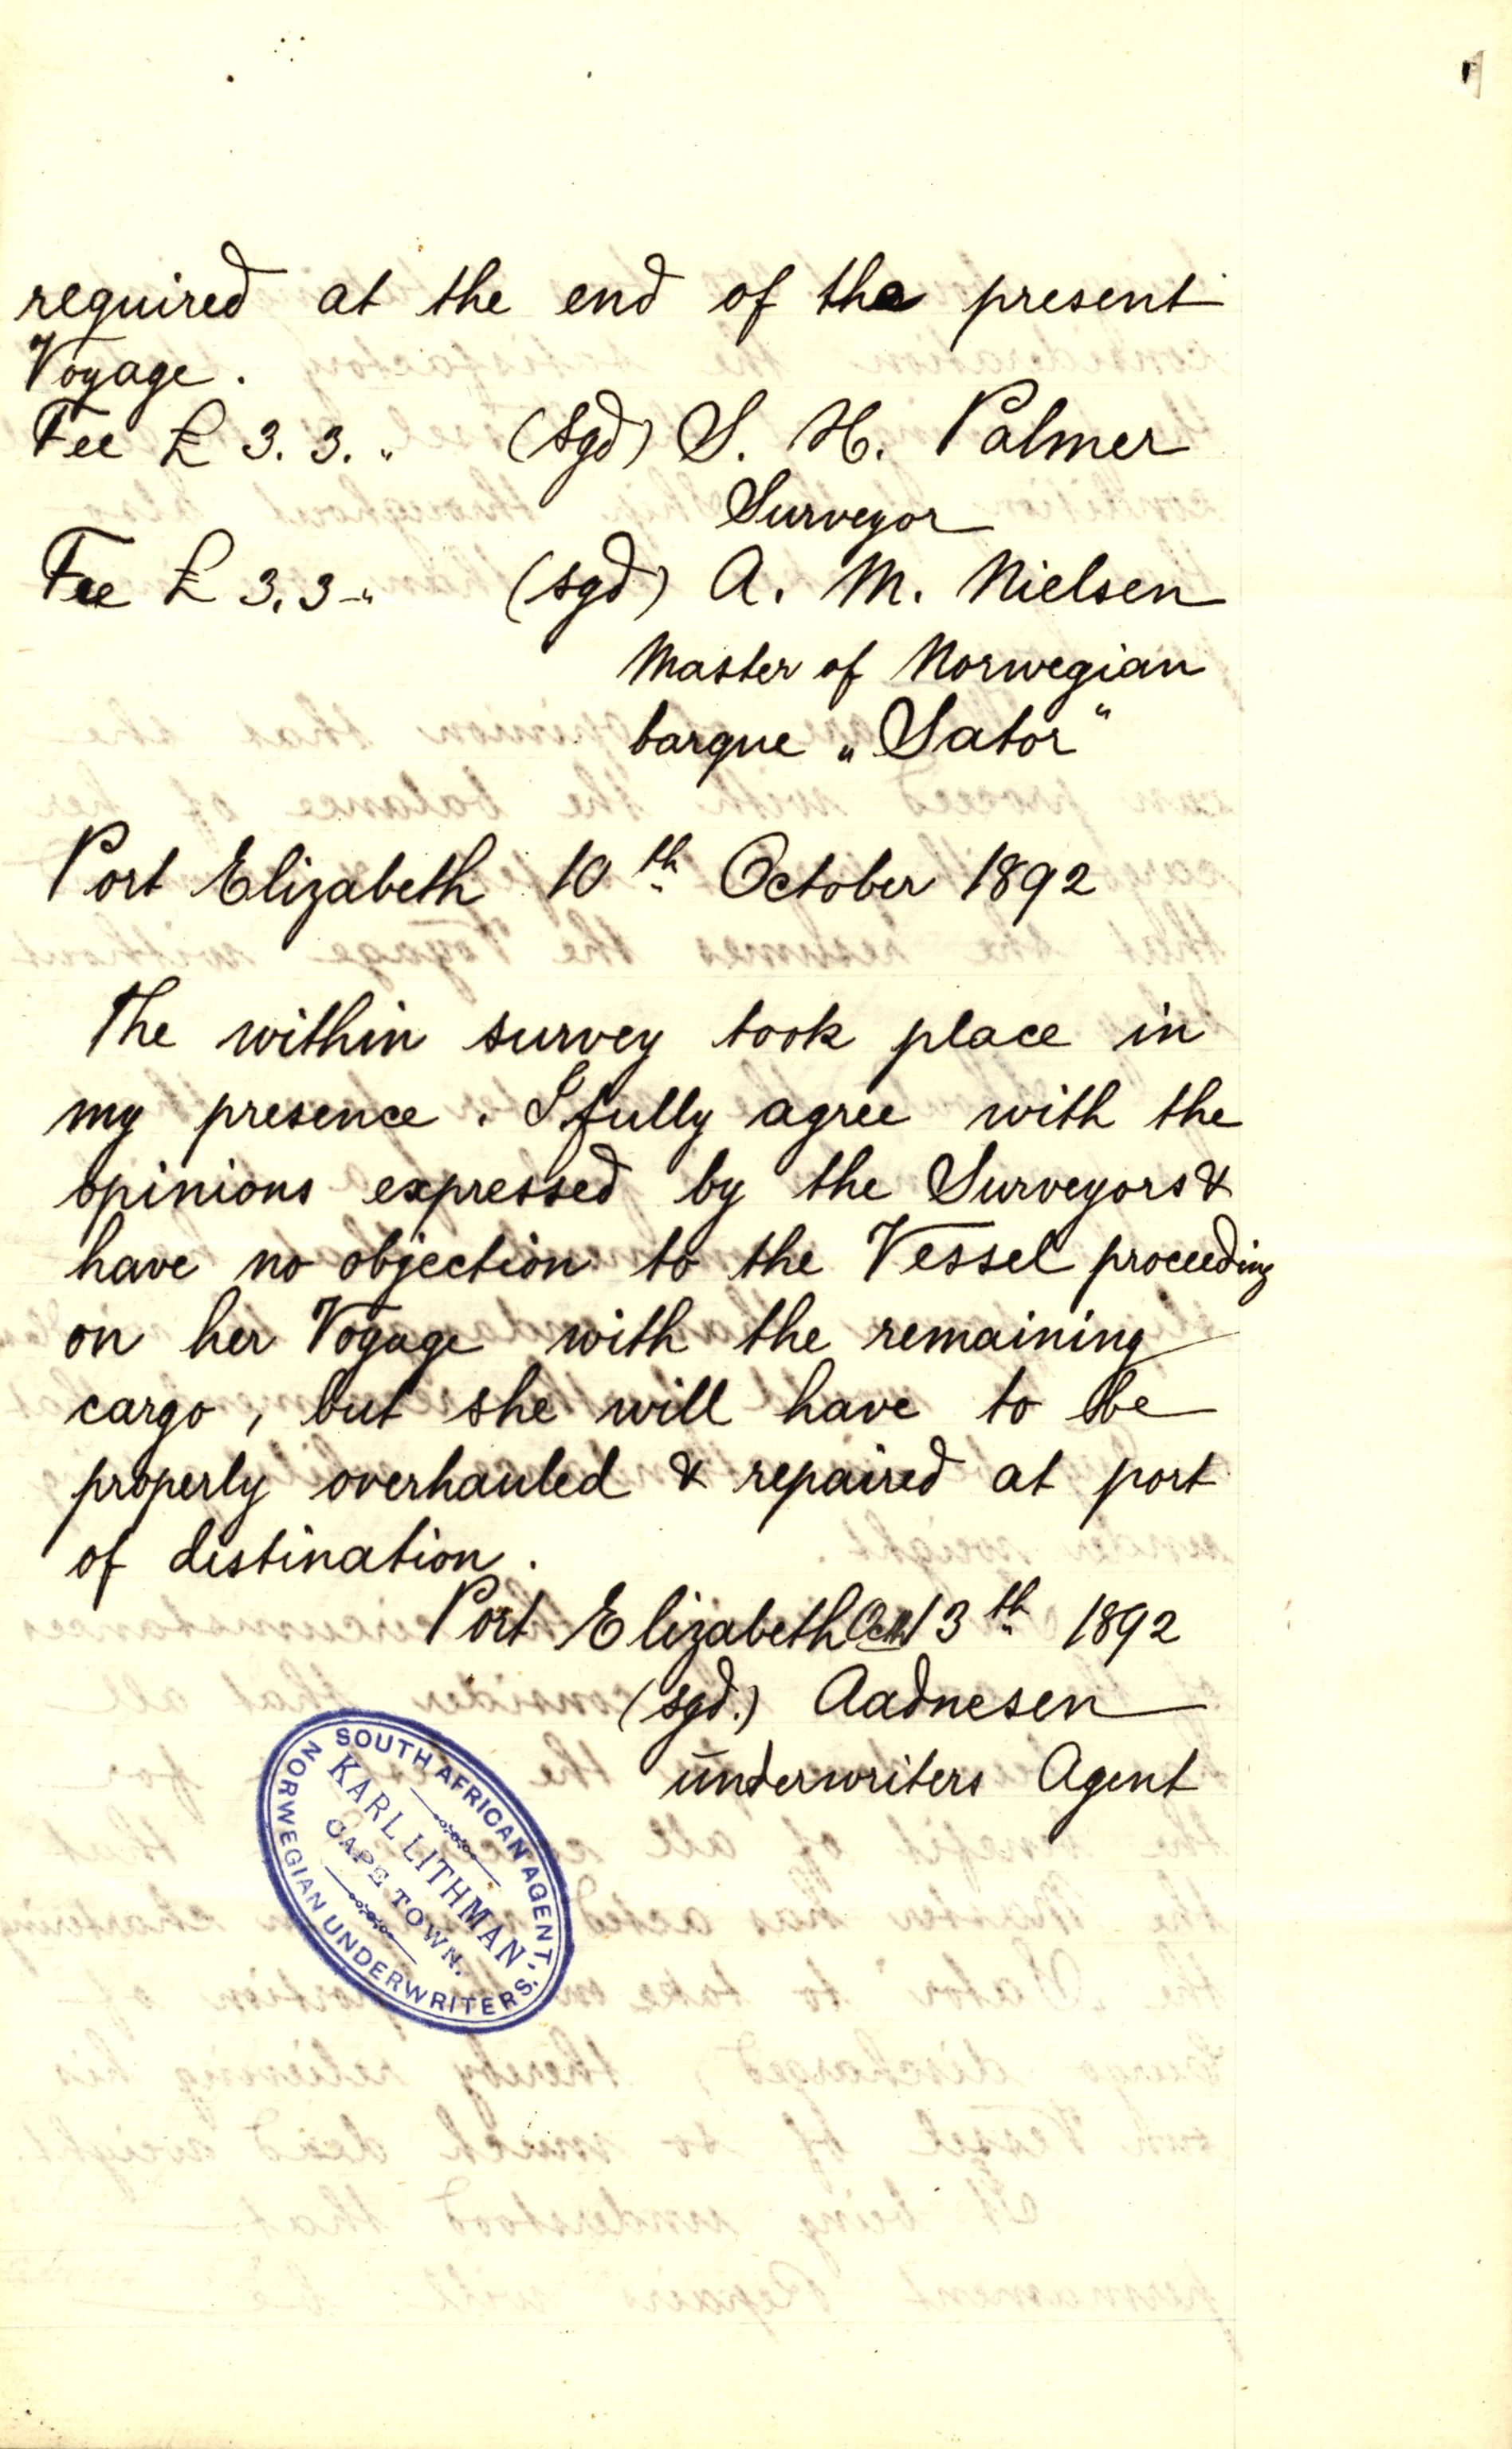 required at the end of the present
Voyage.
Fee £ 3. 3. " (sgd) S. H. Palmer
Surveyor
Fee £ 3. 3 - " (sgd) A. M. Nielsen
Master of Norwegian
barque „Sator"
Port Elizabeth 10th October 1892
The within survey took place in
my presence. I fully agree with the
opinions expressed by the Surveyors &
have no objection to the Vessel proceeding
on her Voyage with the remaining
cargo, but she will have to be
properly overhauled & repaired at port
of destination.
Port Elizabeth Oct 13th 1892
(sgd.) Aadnesen
underwriters Agent
SOUTH AFRICAN AGENT
KARL LITHMAN
CAPE TOWN.
NORWEGIAN UNDERWRITERS.